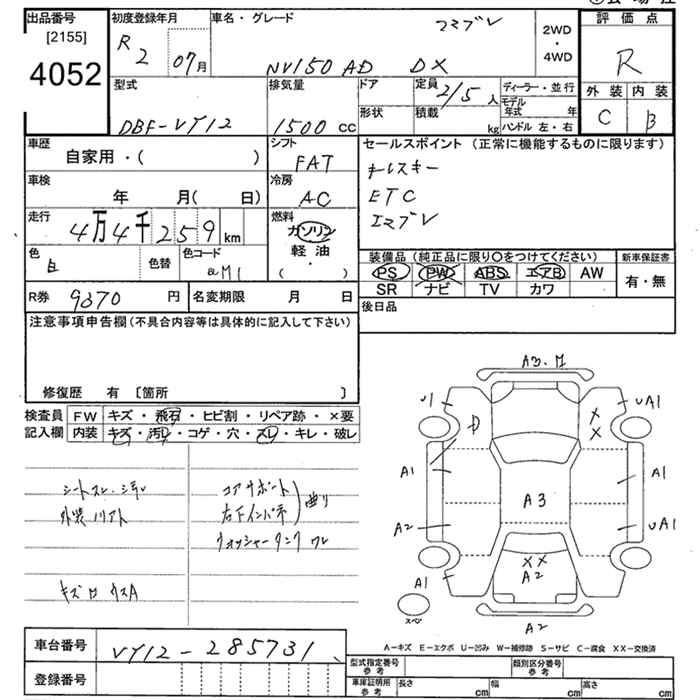 出品番号
[2155]
4052
初度登録年月
R 2 07月
車名・グレード
エマブレ
NV150 AD DX
2WD
・
4WD
評価点
R
外装 内装
C B
型式
DBF-VY12
排気量
1500 cc
ドア
形状
定員
2/5 人
積載
kg
ディーラー・並行
モデル年式 年
ハンドル 左・右
車歴
自家用・( )
シフト
FAT
車検
年 月( 日)
冷房
AC
走行
4万4千259km
燃料
ガソリン
軽油
・
( )
色
白
色替
色コード
QM1
R券
9870円
名変期限 月 日
セールスポイント (正常に機能するものに限ります)
キーレスキー
ETC
エマブレ
装備品 (純正品に限り○をつけてください)
PS PW ABS エアB AW
SR ナビ TV カワ
新車保証書
有・無
後日品
注意事項申告欄(不具合内容等は具体的に記入して下さい)
修復歴 有 〔箇所 〕
検査員記入欄
FW キズ・飛石・ヒビ割・リペア跡・×要
内装 キズ・汚レ・コゲ・穴・スレ・キレ・破レ
シートスレ・シミ
コアサポート
右下インパネ
曲り
ウォッシャータンク ワレ
A3.M
U1
UA1
D
X
X
A1
A1
A3
A2
UA1
XX
A2
A1
A1
スペア
A2
A－キズ E－エクボ U－凹み W－補修跡 S－サビ C－腐食 XX－交換済
車台番号
VY12-285731
登録番号
型式指定番号 参考
類別区分番号 参考
車庫証明用 参考
長さ cm
幅 cm
高さ cm